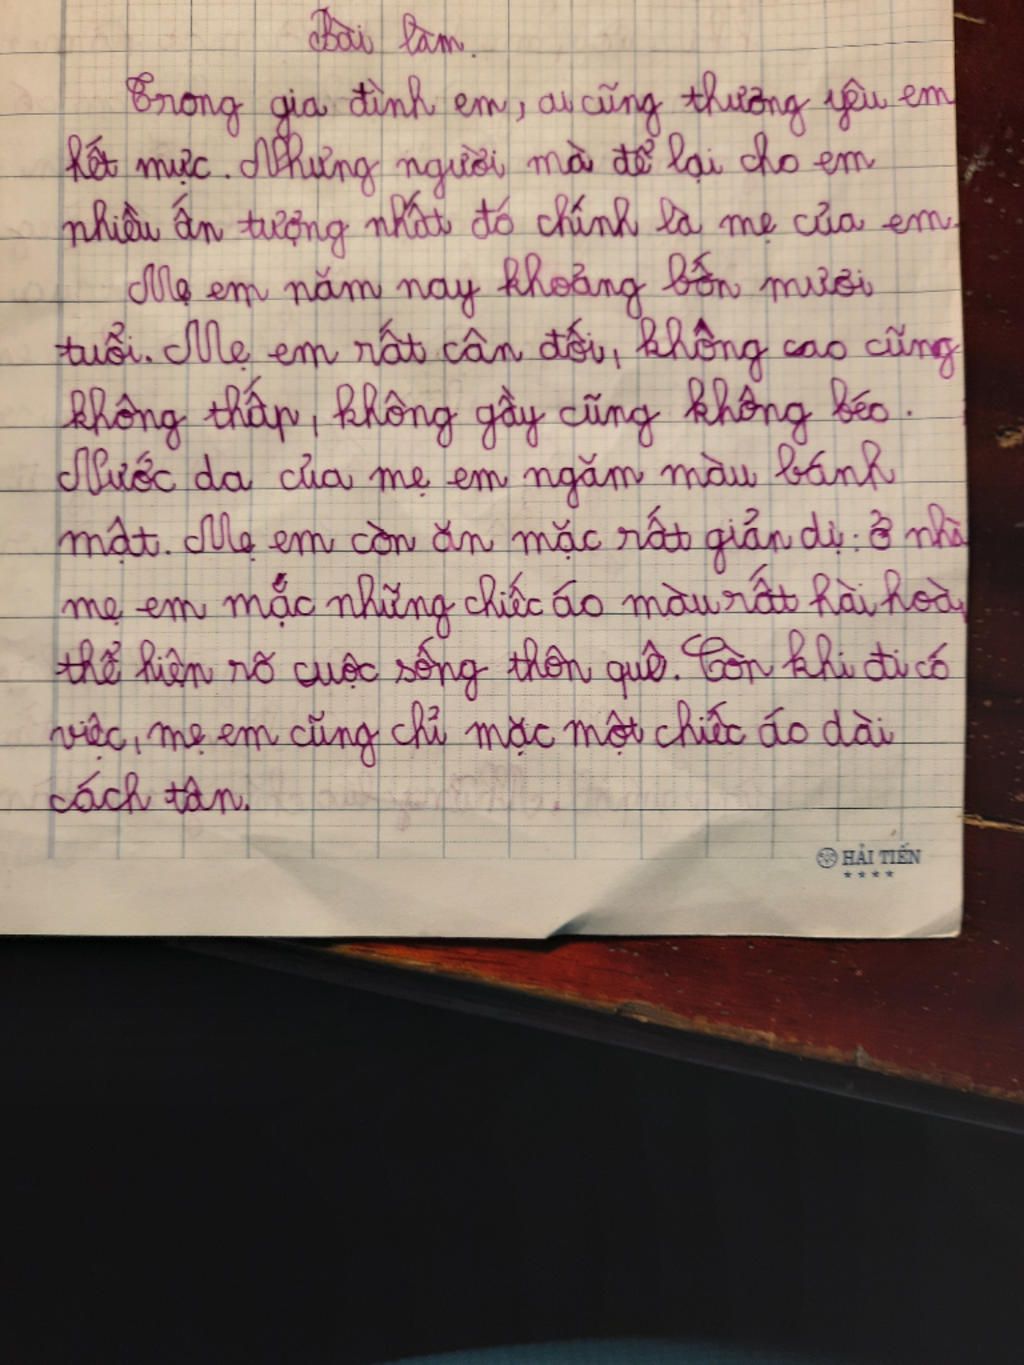 Bài làm.
Trong gia đình em, ai cũng thương yêu em
hết mực. Nhưng người mà để lại cho em
nhiều ấn tượng nhất đó chính là mẹ của em.
Mẹ em năm nay khoảng bốn mươi
tuổi. Mẹ em rất cân đối, không cao cũng
không thấp, không gầy cũng không béo.
Nước da của mẹ em ngăm màu bánh
mật. Mẹ em còn ăn mặc rất giản dị: ở nhà
mẹ em mặc những chiếc áo màu rất hài hoà,
thể hiện rõ cuộc sống thôn quê. Còn khi đi có
việc, mẹ em cũng chỉ mặc một chiếc áo dài
cách tân.
HẢI TIẾN